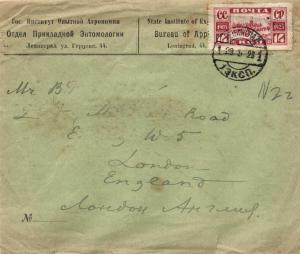 Гос. Институт Опытной Агрономии
Отдел Прикладной Энтомологии
Ленинград ул. Герцена, 44.
State Institute of Ex
Bureau of App
Leningrad, 44.
ПОЧТА
ЭКСП.
Mr B
Road
E W5
London
England
Лондон Англия.
№